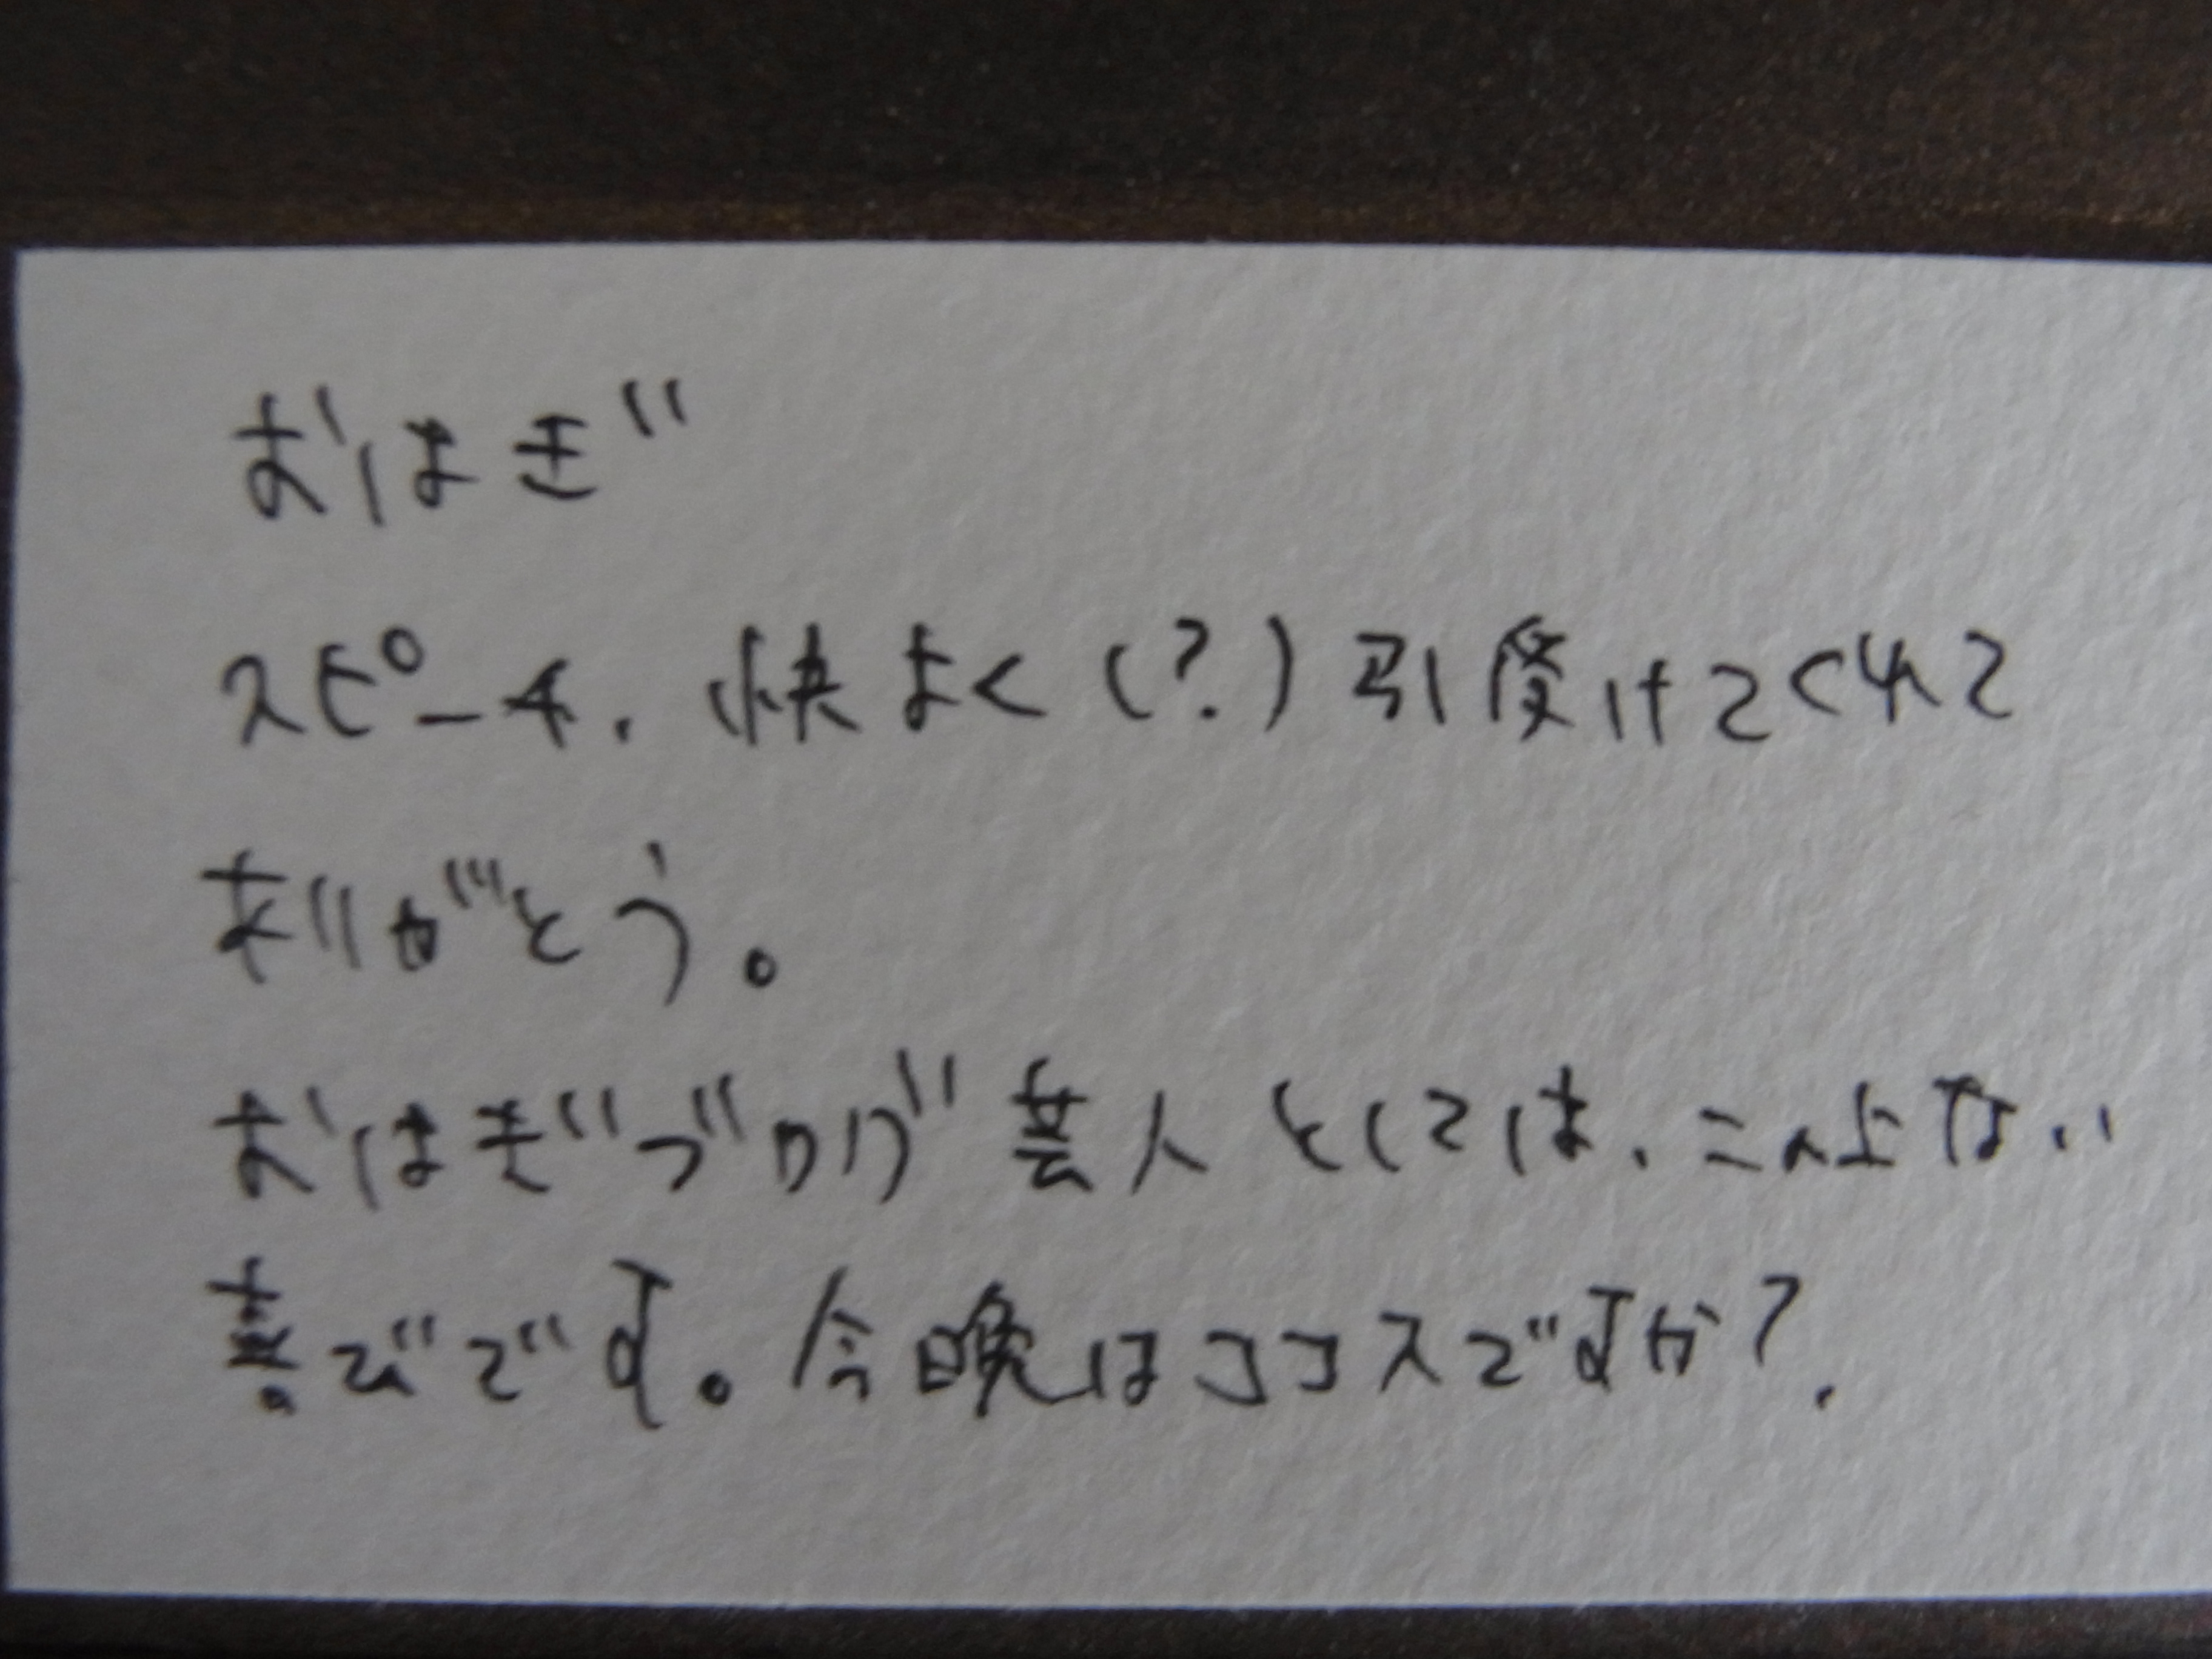 おはぎ
スピーチ、快よく(?)引受けてくれて
ありがとう。
おはぎづかい芸人としては、この上ない
喜びです。今晩はココスですか?